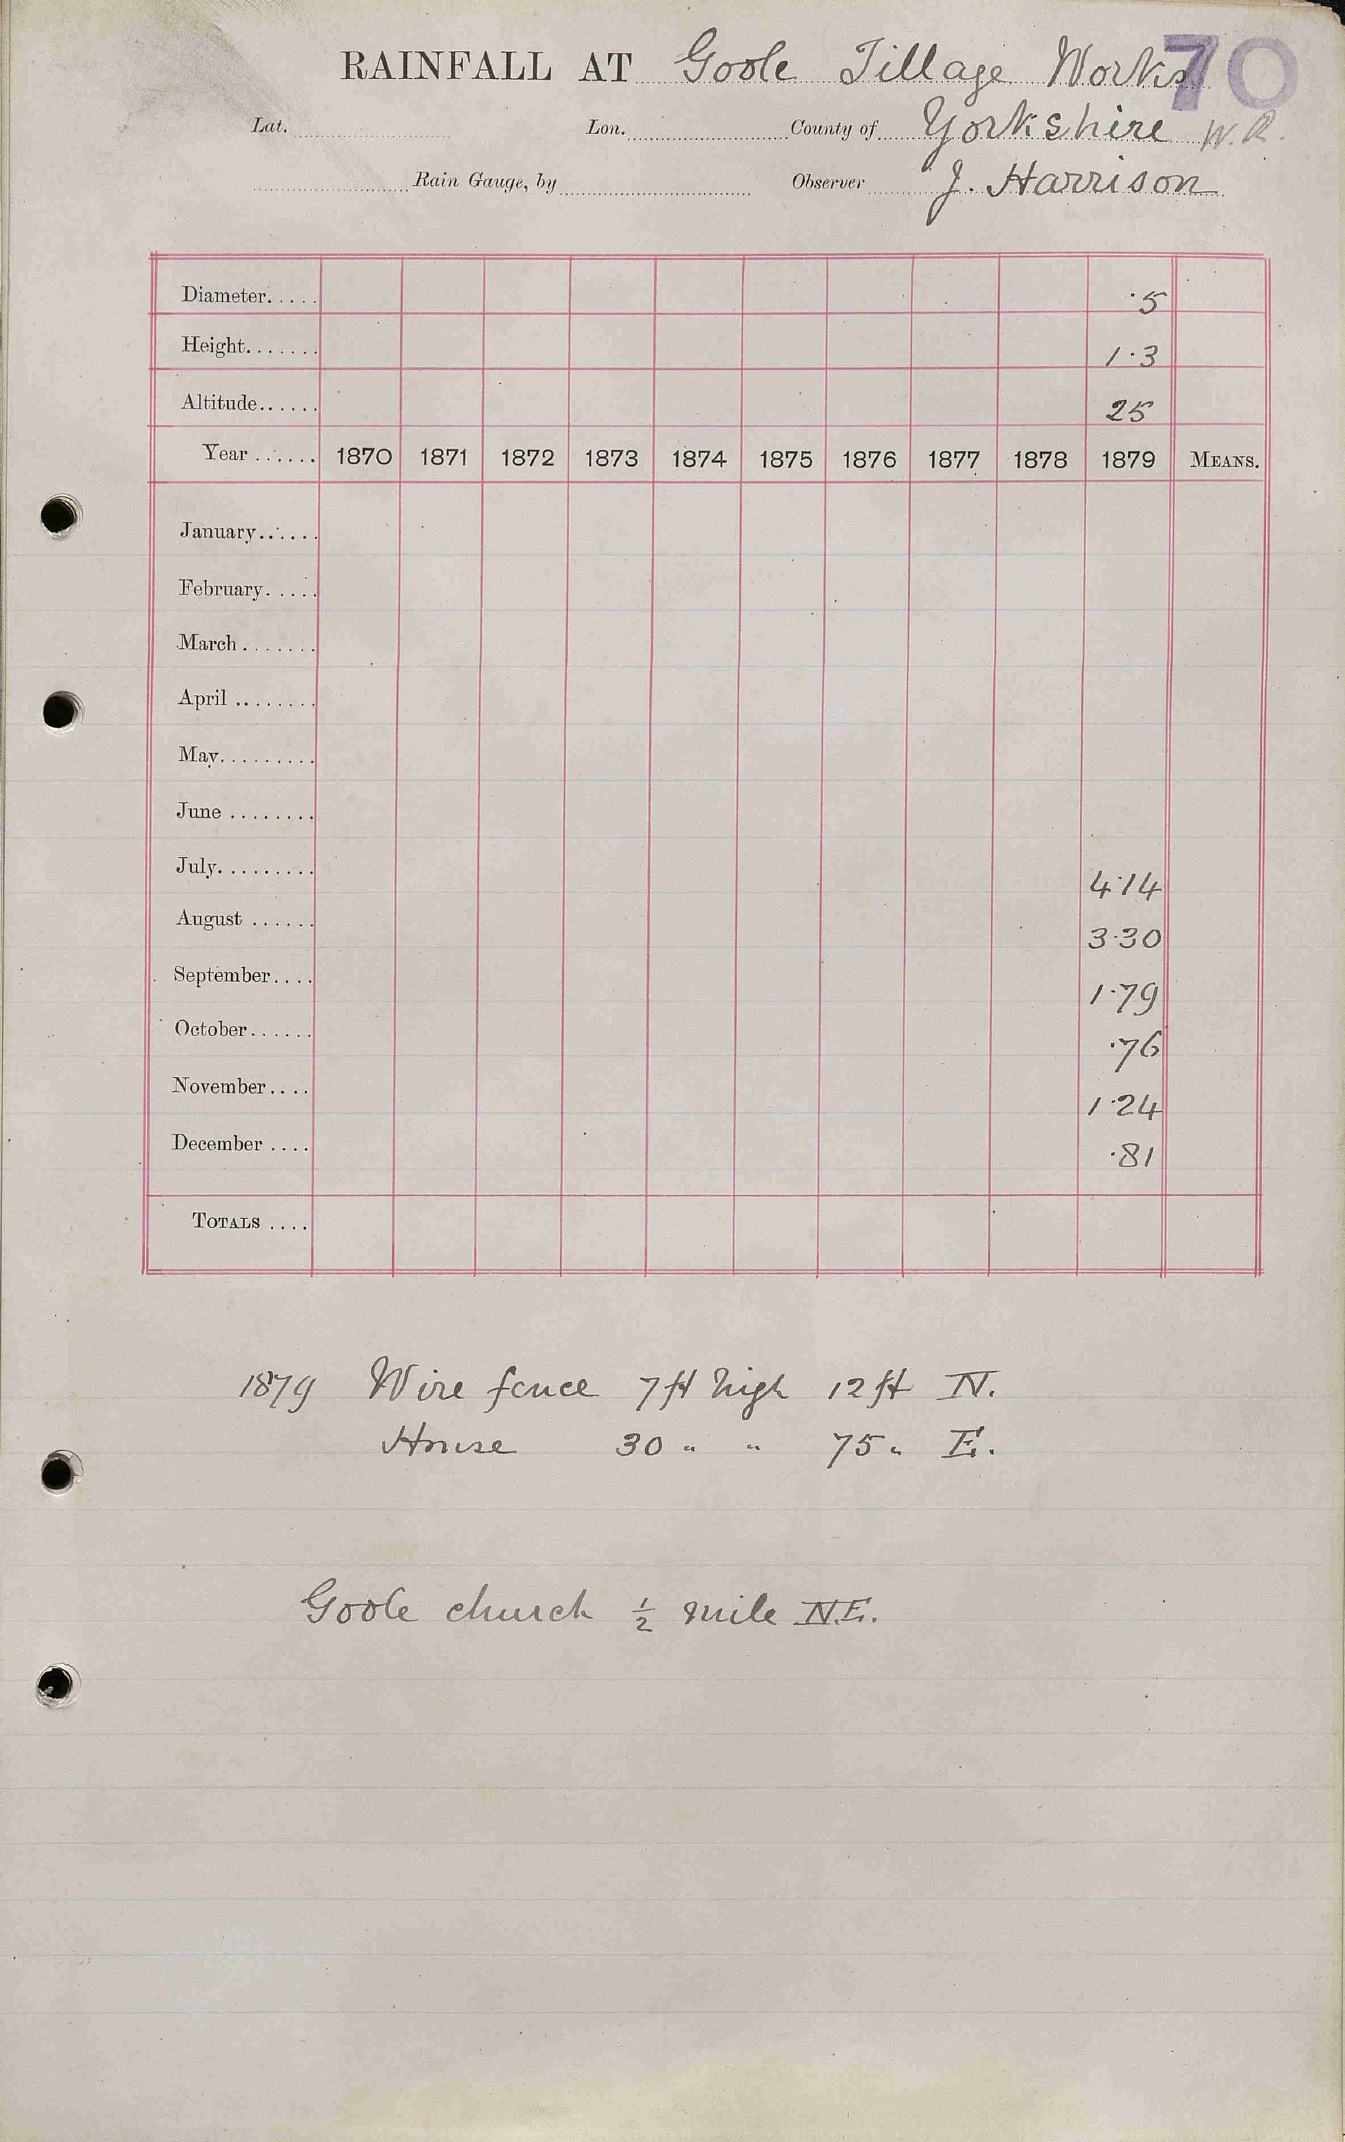 RAINFALL AT Goole Tillage Works 70
Lat. Lon. County of Yorkshire W.R.
Rain Gauge, by Observer J. Harrison
Diameter..... ·5
Height....... 1·3
Altitude...... 25
Year ...... 1870 1871 1872 1873 1874 1875 1876 1877 1878 1879 MEANS.
January......
February.....
March .......
April ........
May.........
June ........
July......... 4·14
August ...... 3·30
September.... 1·79
October...... ·76
November.... 1·24
December .... ·81
TOTALS ....
1879 Wire fence 7ft high 12ft N.
House 30 " " 75 " E.
Goole church ½ mile N.E.